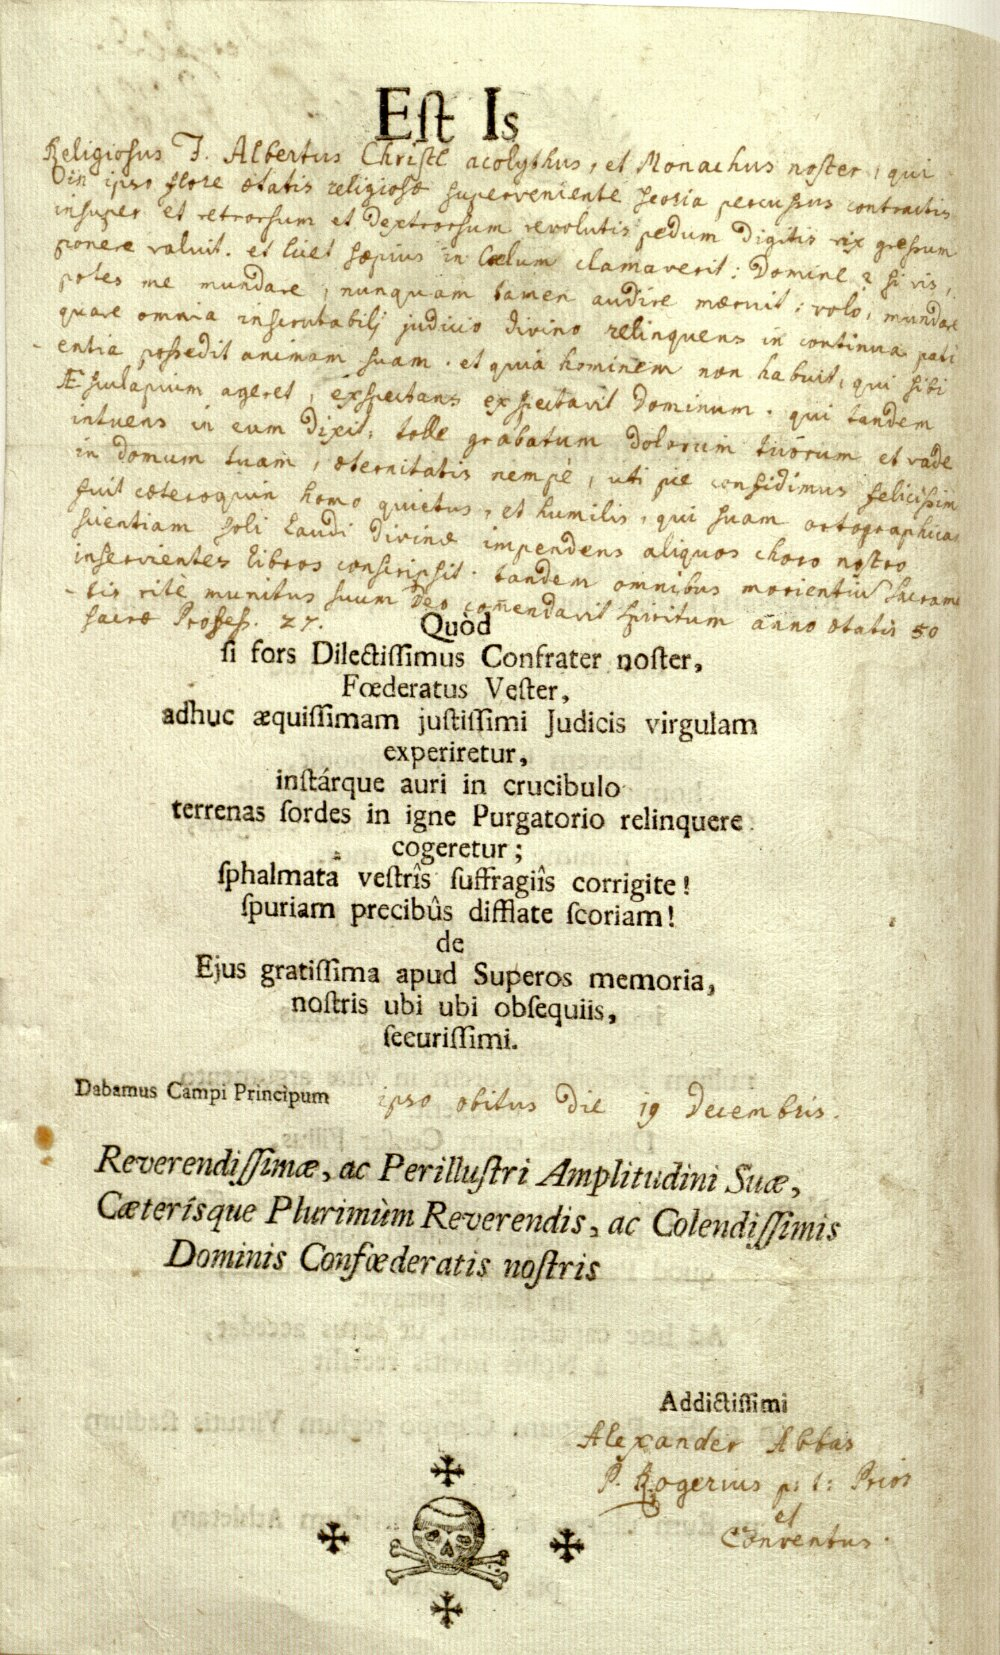 Eſt Is
Religiosus F. Albertus Christl acolythus, et Monachus noster, qui
in ipso flore ætatis religiosæ superveniente percussus contractis
insuper et retrorsum et dextrorsum revolutis pedum digitis vix gressum
ponere valuit. et licet sæpius in Cœlum clamaverit: Domine, si vis,
potes me mundare, nunquam tamen audire mæruit: volo, mundare
quare omnia inscrutabilj judicio divino relinquens in continua pati
entia possedit animam suam. et quia hominem non habuit, qui sibi
Æsculapium ageret, exspectans exspectavit Dominum. qui tandem
intuens in eum dixit: tolle grabatum dolorum tuorum et vade
in domum tuam, æternitatis nempè, uti pie confidimus felicissim
fuit cæteroquin homo quietus, et humilis, qui suam ortographicam
scientiam soli Laudi divinæ impendens aliquos choro nostro
inservientes libros conscripsit. tandem omnibus morientiū Sacrame
tis ritè munitus suum Deo com̄endavit spiritum anno ætatis 50
sacræ Profess. 27.
Quòd
ſi fors Dilectiſſimus Confrater noſter,
Fœderatus Veſter,
adhuc æquiſſimam juſtiſſimi Judicis virgulam
experiretur,
inſtárque auri in crucibulo
terrenas ſordes in igne Purgatorio relinquere
cogeretur;
ſphalmata veſtrîs ſuffragiîs corrigite!
ſpuriam precibûs difflate ſcoriam!
de
Ejus gratiſſima apud Superos memoria,
noſtris ubi ubi obſequiis,
ſecuriſſimi.
Dabamus Campi Principum ipso obitus die 19 Decembris.
Reverendiſſimæ, ac Perilluſtri Amplitudini Suæ,
Cæterísque Plurimùm Reverendis, ac Colendiſſimis
Dominis Confœderatis noſtris
Addictiſſimi
Alexander Abbas
P. Rogerius p: t: Prior
et
Conventus.